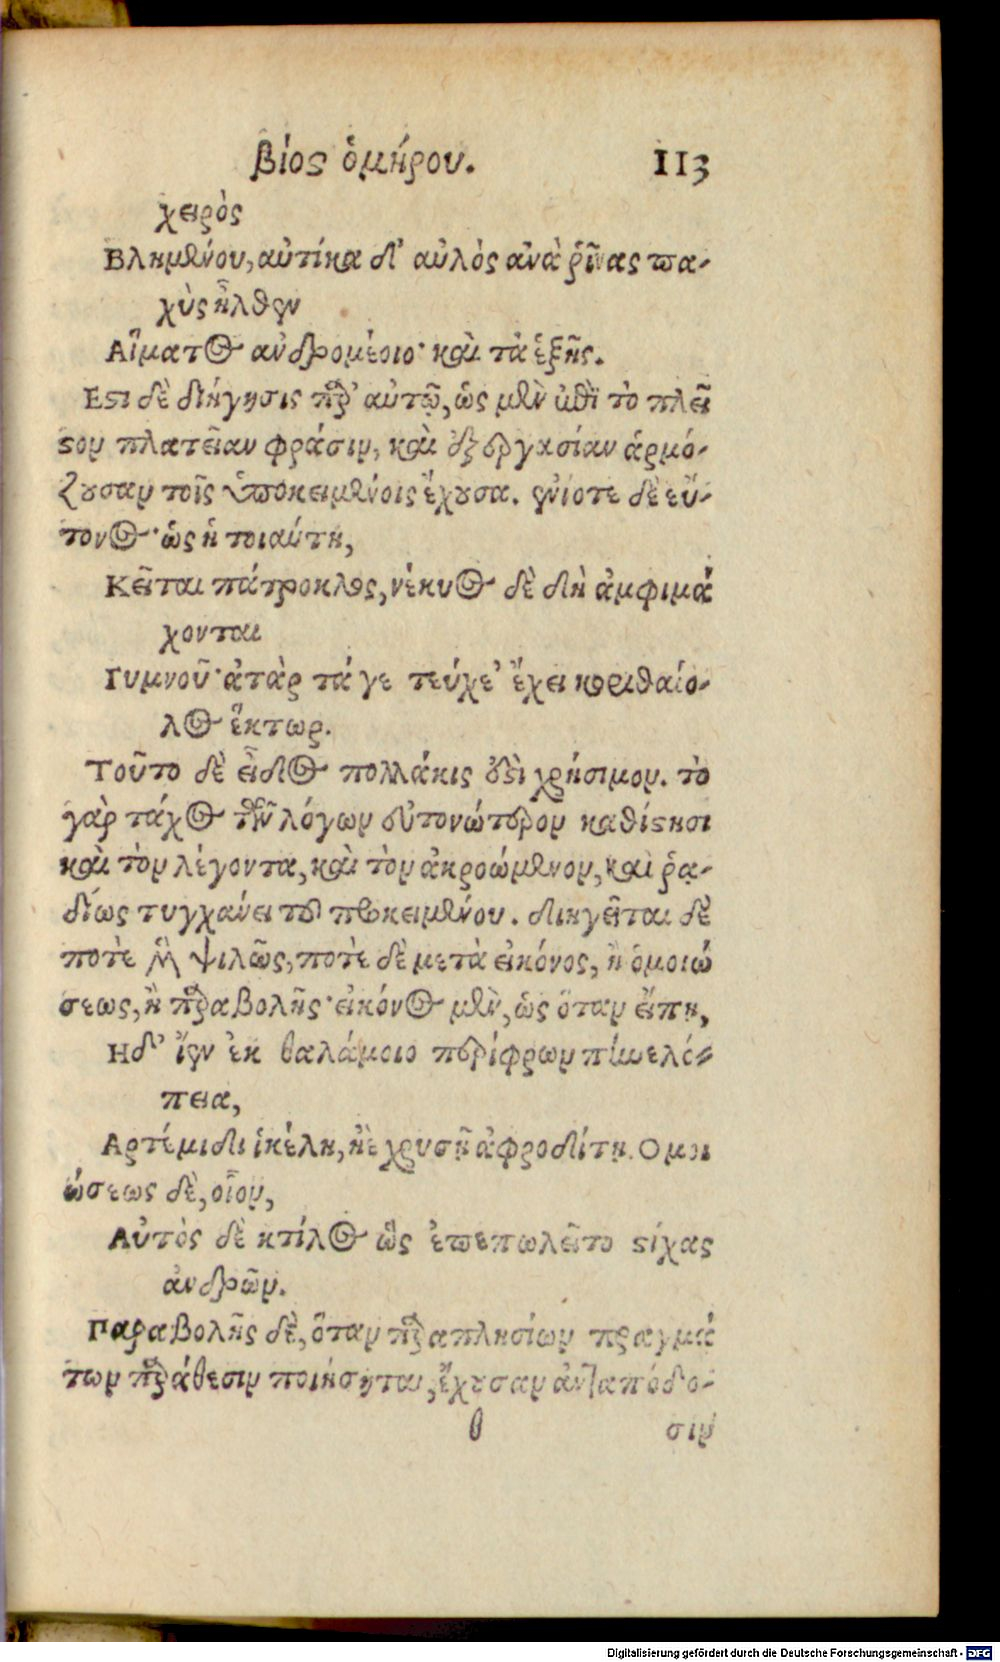 βίος ὁμήρου. 113
χειρὸς
Βλημένου, αὐτίκα δ' αὐλὸς ἀνὰ ῥῖνας πα-
χὺς ἦλθεν
Αἵματος ἀνδρομέοιο· καὶ τὰ ἑξῆς.
Εστι δὲ διήγησις παρ' αὐτῷ, ὡς μὲν ἐπὶ τὸ πλεῖ
στον πλατεῖαν φράσιν, καὶ ἐξεργασίαν ἁρμό-
ζουσαν τοῖς ὑποκειμένοις ἔχουσα. ἐνίοτε δὲ εὔ-
τονος· ὡς ἡ τοιαύτη,
Κεῖται πάτροκλος, νέκυος δὲ δὴ ἀμφιμά
χονται
Γυμνοῦ· ἀτὰρ τάγε τεύχε' ἔχει κορυθαίο-
λος ἕκτωρ.
Τοῦτο δὲ εἶδος πολλάκις ἐστὶ χρήσιμον. τὸ
γὰρ τάχος τῶν λόγων εὐτονώτερον καθίστησι
καὶ τὸν λέγοντα, καὶ τὸν ἀκροώμενον, καὶ ῥᾳ-
δίως τυγχάνει τοῦ προκειμένου. διηγεῖται δὲ
ποτὲ μὲν ψιλῶς, ποτὲ δὲ μετὰ εἰκόνος, ἢ ὁμοιώ
σεως, ἢ παραβολῆς· εἰκόνος μὲν, ὡς ὅταν εἴπη,
Ηδ' ἴεν ἐκ θαλάμοιο περίφρων πηνελό-
πεια,
Αρτέμιδι ἰκέλη, ἠὲ χρυσῇ ἀφροδίτη. Ομοι
ώσεως δὲ, οἷον,
Αὐτὸς δὲ κτίλος ὣς ἐπεπωλεῖτο στίχας
ἀνδρῶν.
Παραβολῆς δὲ, ὅταν παραπλησίων πραγμά
των παράθεσιν ποιήσηται, ἔχουσαν ἀνταπόδο-
θ σιν
Digitalisierung gefördert durch die Deutsche Forschungsgemeinschaft - DFG